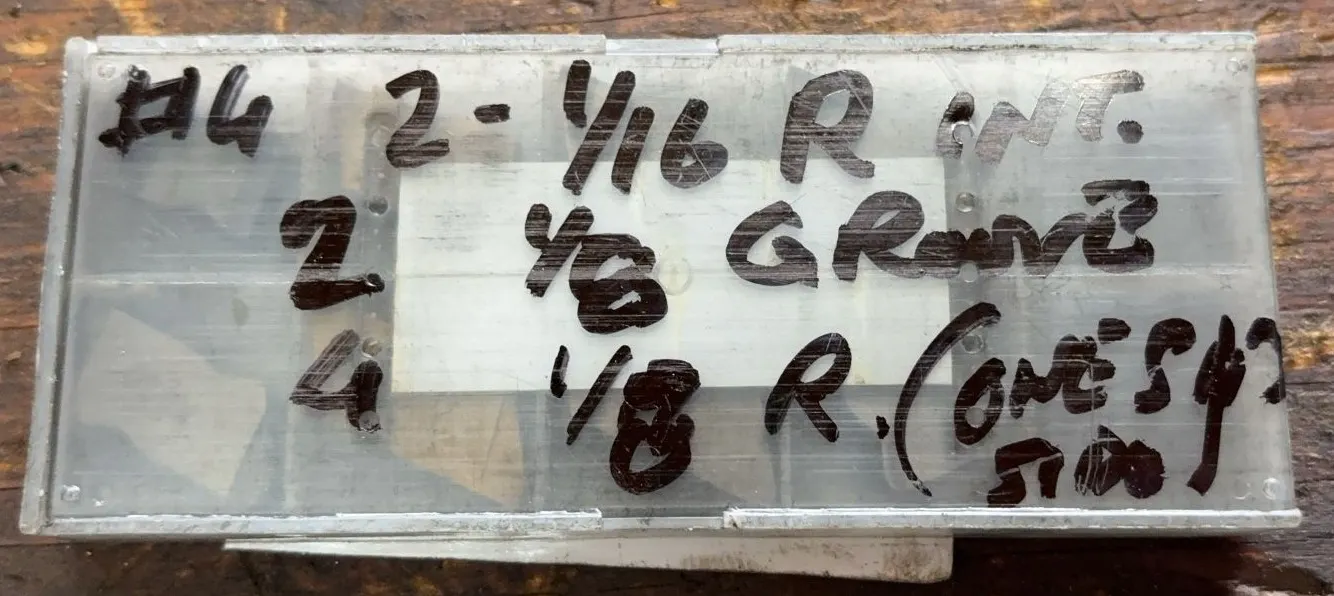 #4 2- 1/16 R INT.
2. 1/8 GR
4 1/8 R. (ONE